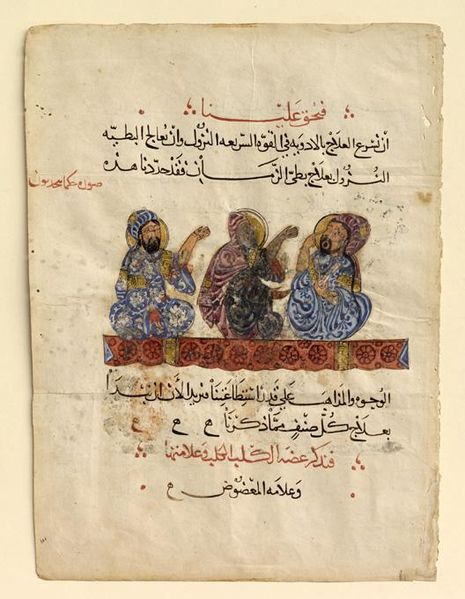 فيحق علينا
ان نشرع العلاج بالادويه في القوه السريعه النزول وان نعالج البطيه
النزول بعلاج بطى الزمان فقد حددنا هذه
صورة حكما يتحدثون
الوجوه والمذاهب على قدر استطاعتنا فنريد الأن ان نبتدا
بعلاج كل صنف مما ذكرنا
فنذكر عضه الكلب الكلب وعلاماتها
وعلامه المعضوض